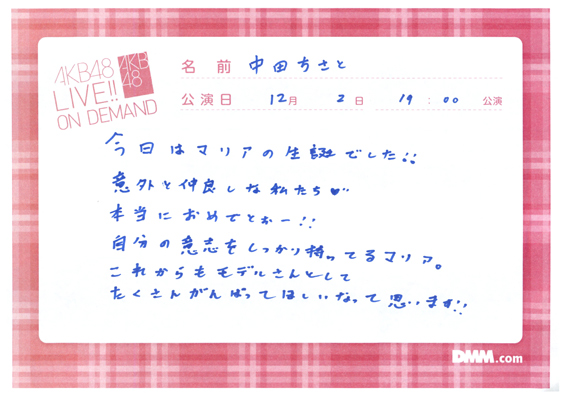 AKB48
LIVE!!
ON DEMAND
AKB
48
名前 中田ちさと
公演日 12月 2日 19:00 公演
今日はマリアの生誕でした!!
意外と仲良しな私たち♥
本当におめでとおー!!
自分の意志をしっかり持ってるマリア。
これからもモデルさんとして
たくさんがんばってほしいなって思います!!
DMM.com